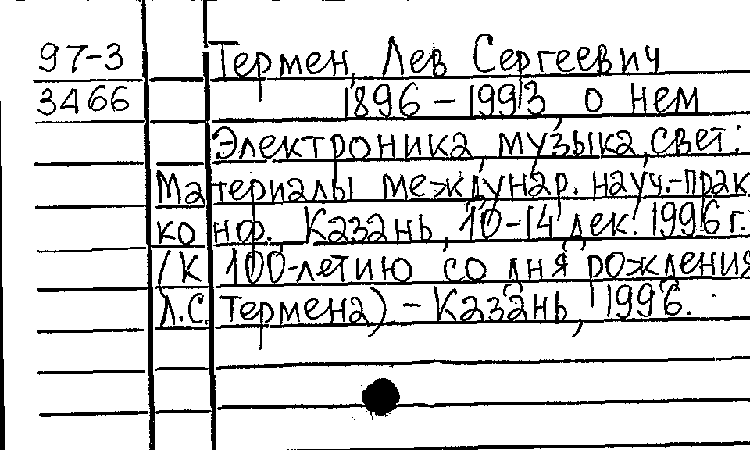 97-3 Термен, Лев Сергеевич
3466 1896-1993, о нем
Электроника, музыка, свет:
Материалы междунар. науч.-прак
конф. Казань, 10-14 дек. 1996 г.
(К 100-летию со дня рождения
Л.С. Термена) - Казань, 1996.